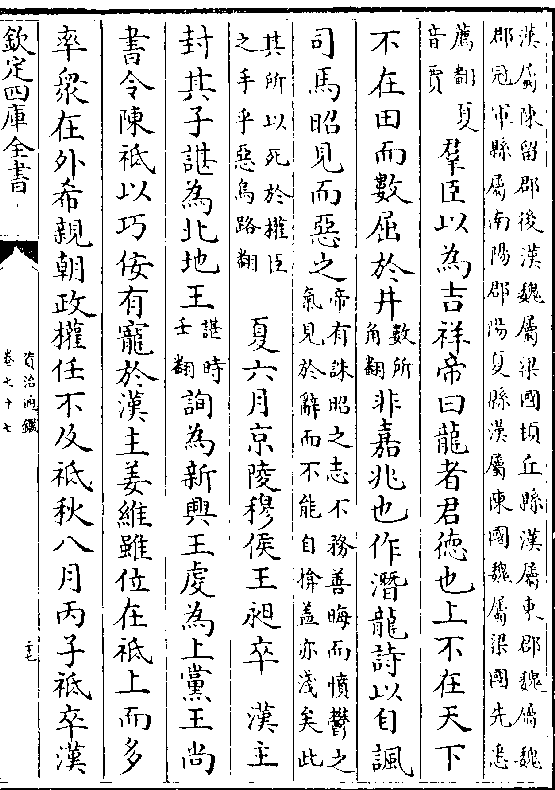 漢屬陳留郡後漢魏屬梁國頓丘縣漢屬東郡魏屬魏
郡冠軍縣屬南陽郡陽夏縣漢屬陳國魏屬梁國先悉
薦翻
音賈
夏羣臣以為吉祥帝曰龍者君徳也上不在天下
不在田而數屈於井
數所
角翻
非嘉兆也作潛龍詩以自諷
司馬昭見而惡之
帝有誅昭之志不務善晦而憤鬱之
氣見於辭而不能自揜葢亦淺矣此
其所以死於權臣
之手乎惡烏路翻
夏六月京陵穆侯王昶卒 漢主
封其子諶為北地王
諶時
壬翻
詢為新興王䖍為上黨王尚
書令陳祗以巧佞有寵於漢主姜維雖位在祗上而多
率衆在外希親朝政權任不及祗秋八月丙子祗卒漢
欽定四庫全書
資治通鑑
卷七十七